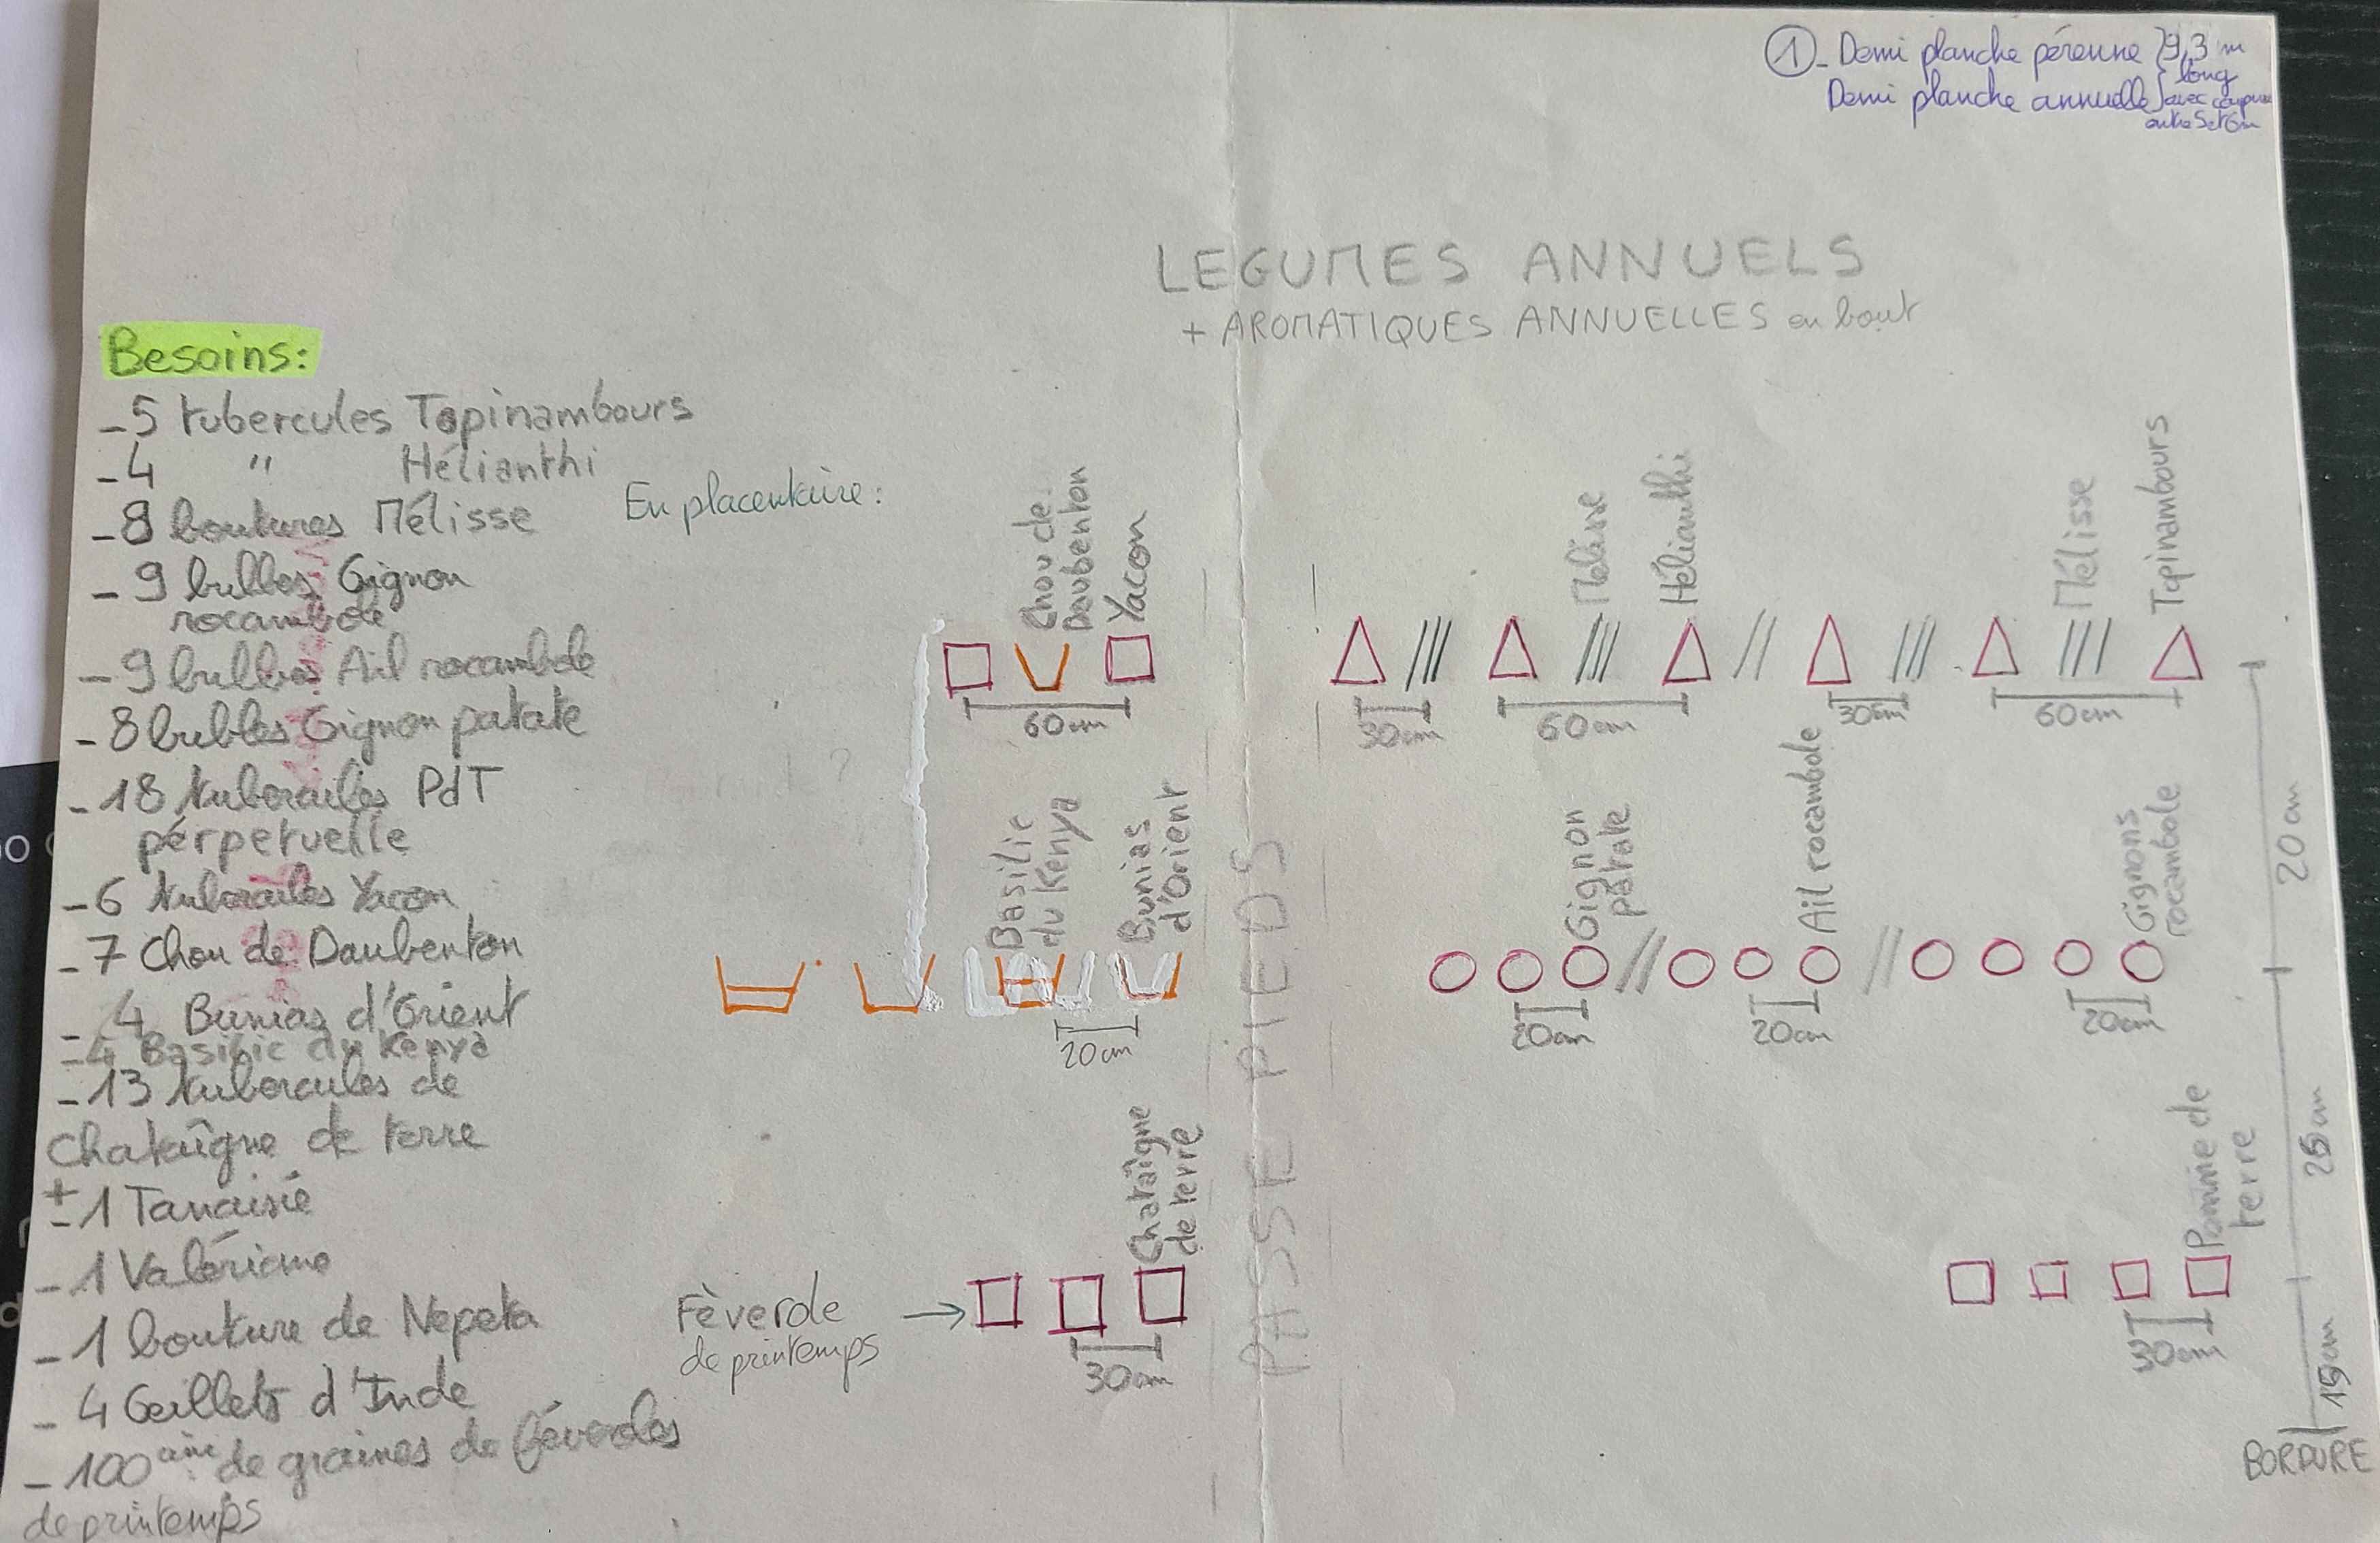 ① - Demi planche pérenne } 9,3 m
long
Demi planche annuelle } avec coupure
entre 5 et 6m
LEGUMES ANNUELS
+ AROMATIQUES ANNUELLES en bout
Besoins:
- 5 tubercules Topinambours
- 4 " Hélianthi
- 8 boutures Mélisse
- 9 bulbes Oignon
rocambole
- 9 bulbes Ail rocambole
- 8 bulbes Oignon patate
- 18 tubercules PdT
pérpetuelle
- 6 tubercules Yacon
- 7 Chou de Daubenton
- 4 Bunias d'Orient
- 4 Basilic du Kenya
- 13 tubercules de
Chataîgne de terre
± 1 Tanaisie
- 1 Valériane
- 1 bouture de Nepeta
- 4 Oeillets d'Inde
- 100aine de graines de féveroles
de printemps
En placentaire :
Chou de
Daubenton
Yacon
60cm
Basilic
du Kenya
Bunias
d'Orient
20cm
Chataîgne
de terre
Fèverole
de printemps
30cm
PASSE PIEDS
Mélisse
Hélianthi
Mélisse
Topinambours
30cm
60cm
30cm
60cm
Oignon
patate
Ail rocambole
Oignons
rocambole
20cm
20cm
20cm
Pomme de
terre
30cm
20cm
25cm
15cm
BORDURE